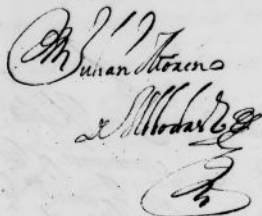 Julian Moreno
de Villodas